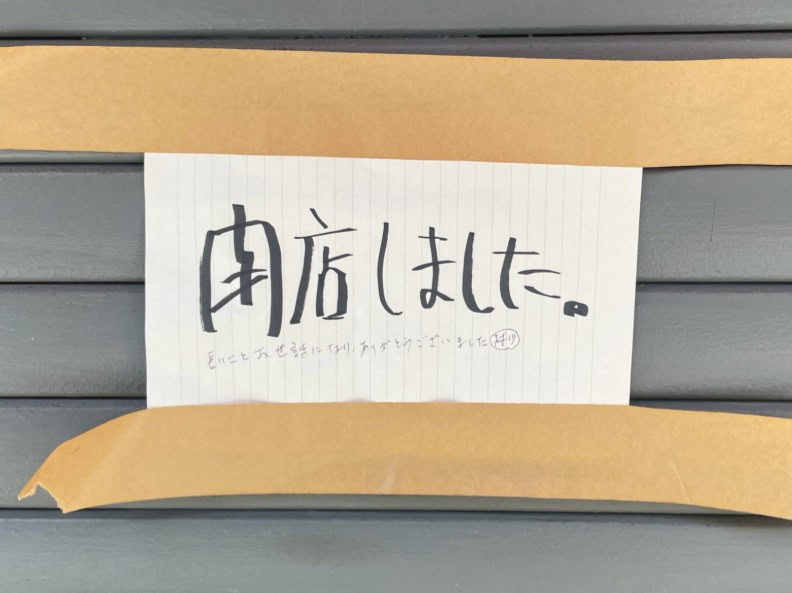 閉店しました。
長いことお世話になり、ありがとうございました